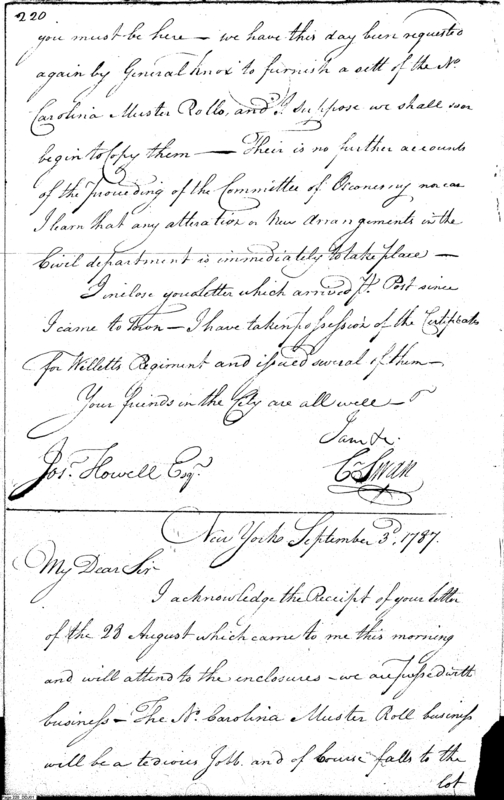 220
you must be here — we have this day been requested
again by General Knox to furnish a sett of the No.
Carolina Muster Rolls, and I suppose we shall soon
begin to Copy them — Their is no further accounts
of the proceeding of the Committee of Oconemy nor can
I learn that any alteration or New Arrangements in the
Civil department is immediately to take place —
I inclose you a letter which arrived pr. Post since
I came to Town — I have taken possession of the Certificates
for Willetts Regiment and issued several of them —
Your friends in the City are all well —
I am &c.
Jos. Howell Esqr.
C. Swan
New York September 3d, 1787.
My Dear Sir
I acknowledge the Receipt of your letter
of the 28 August which came to me this morning
and will attend to the enclosures — we are pressed with
business — The No. Carolina Muster Roll business
will be a tedious Jobb. and of Course falls to the
lot